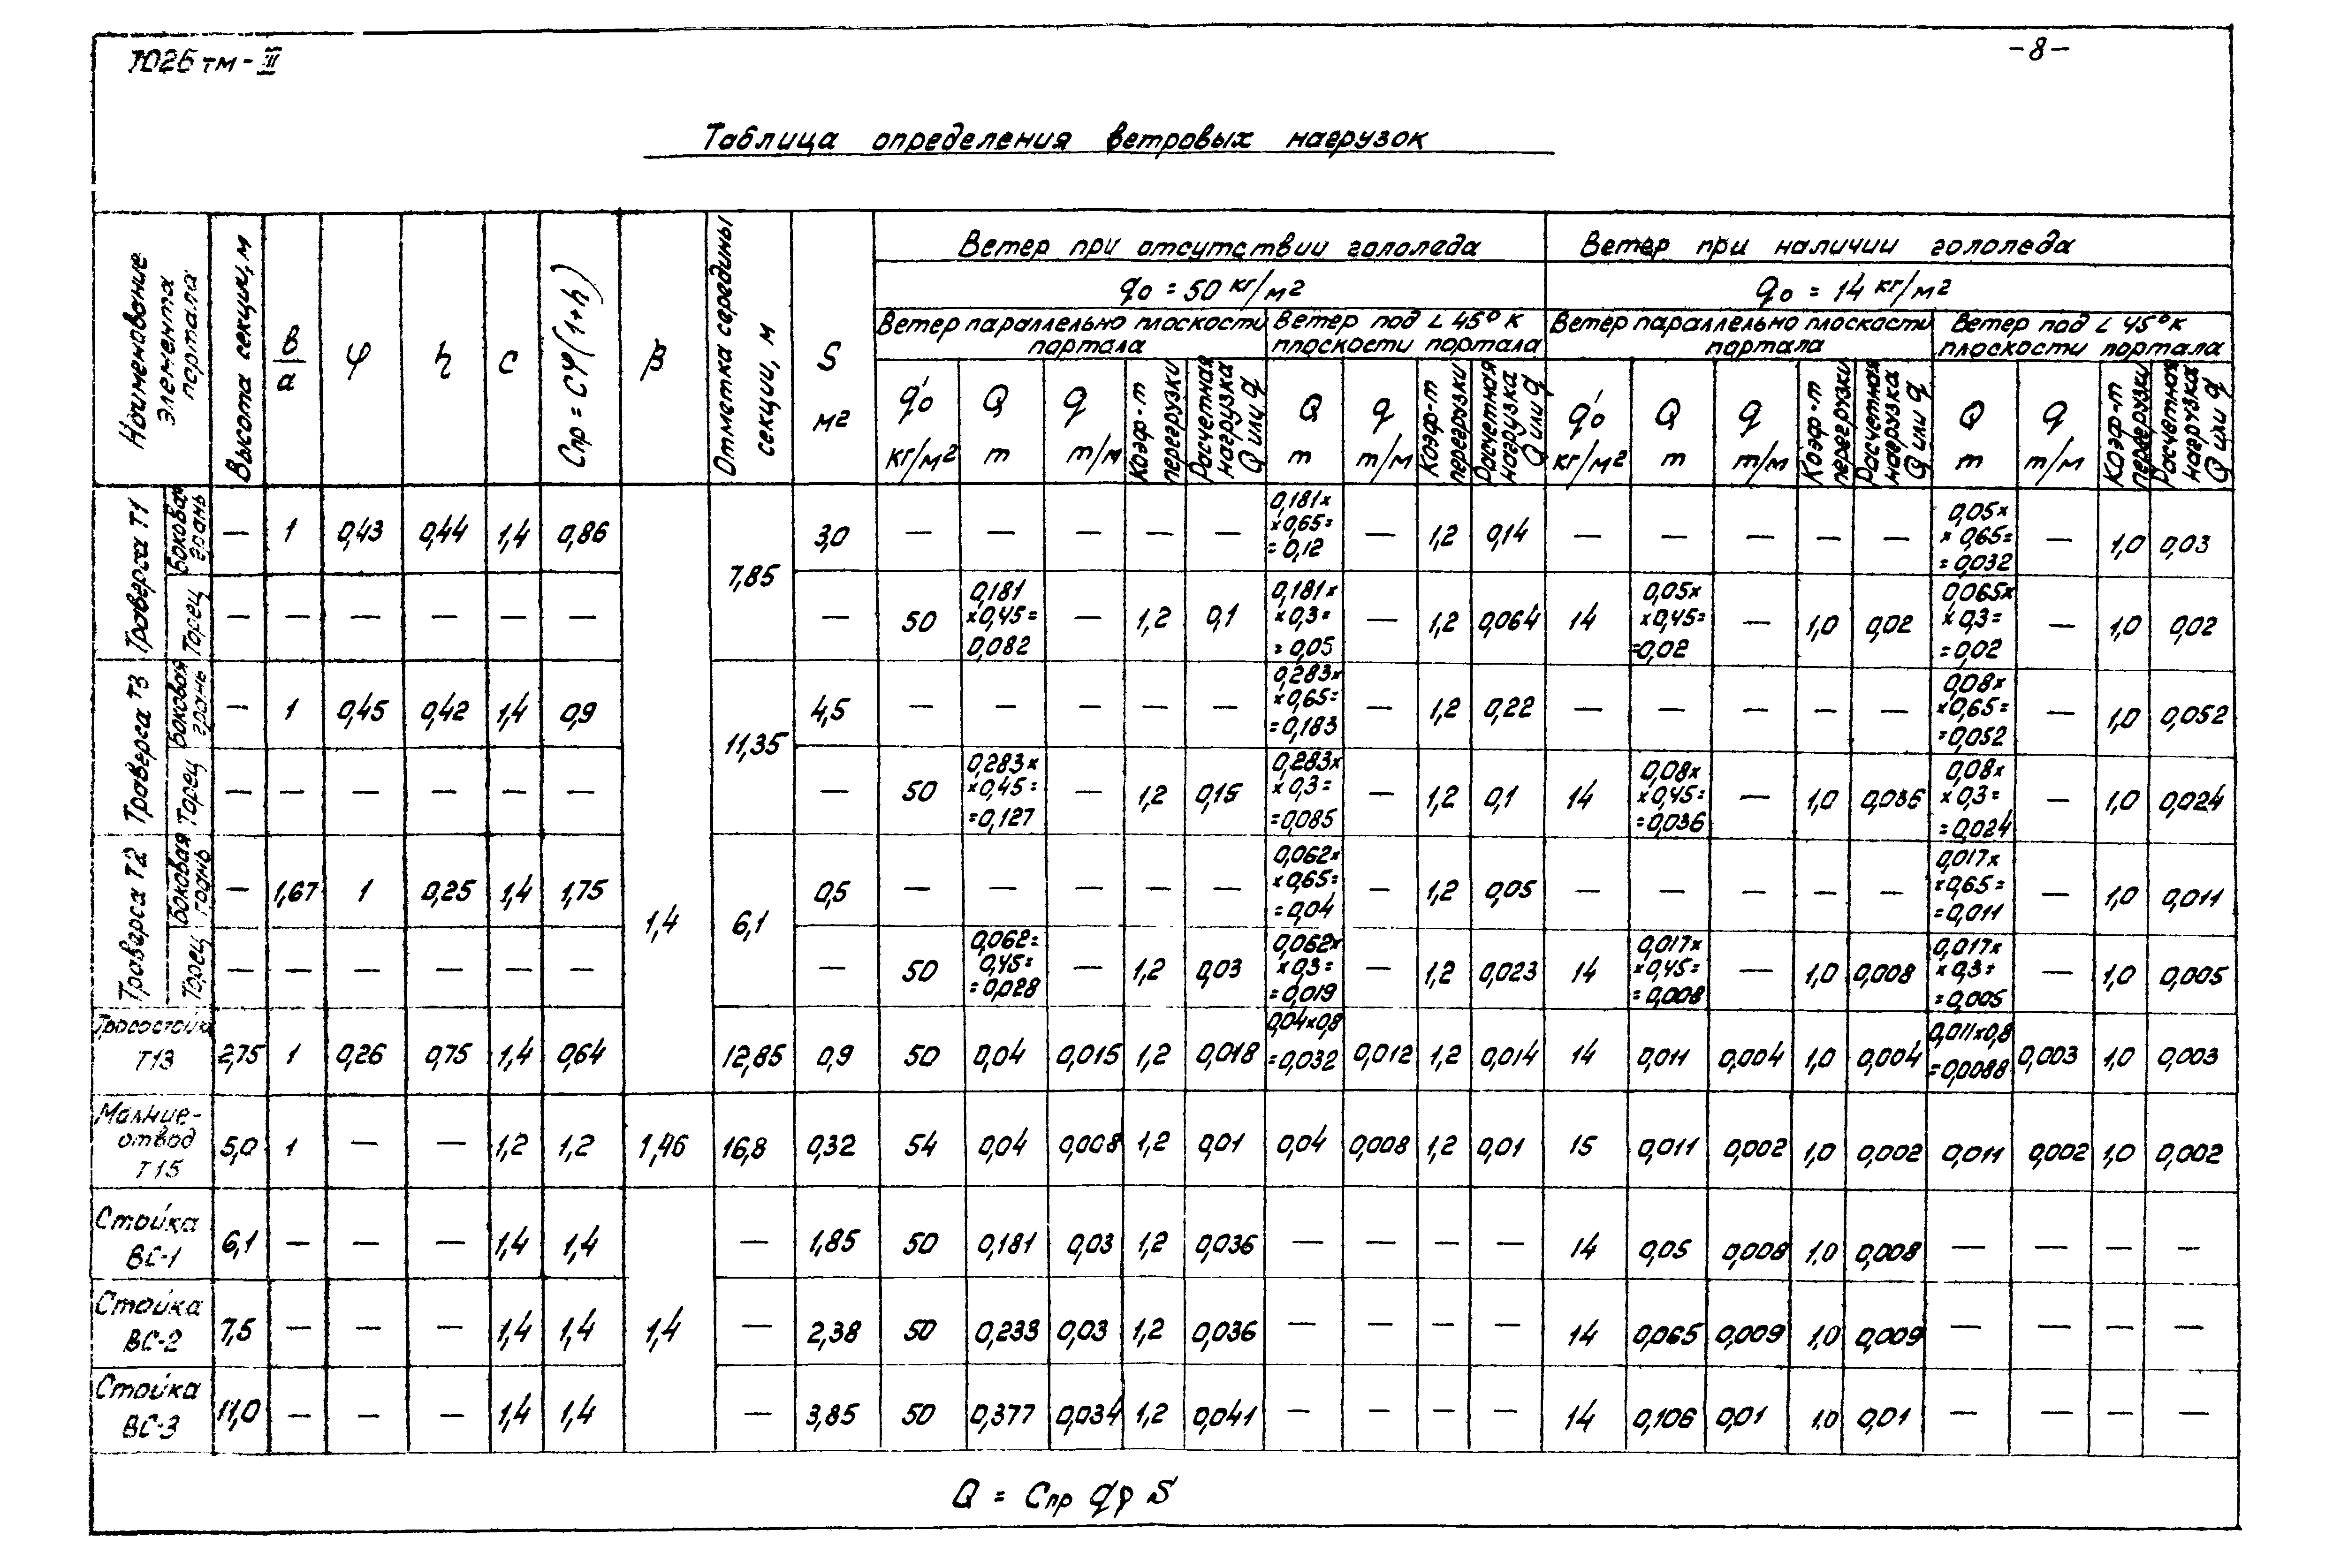 7026тм-III
-8-
Таблица определения ветровых нагрузок
Наименование элемента портала
Высота секции, м
в/а
φ
η
С
Спр = Cφ(1+η)
β
Отметка середины секции, м
S м²
Ветер при отсутствии гололеда
Ветер при наличии гололеда
qо = 50 кг/м²
qо = 14 кг/м²
Ветер параллельно плоскости портала
Ветер под ∠ 45° к плоскости портала
Ветер параллельно плоскости портала
Ветер под ∠ 45° к плоскости портала
q'о кг/м²
Q т
q т/м
Коэф-т перегрузки
Расчетная нагрузка Q или q
Q т
q т/м
Коэф-т перегрузки
Расчетная нагрузка Q или q
q'о кг/м²
Q т
q т/м
Коэф-т перегрузки
Расчетная нагрузка Q или q
Q т
q т/м
Коэф-т перегрузки
Расчетная нагрузка Q или q
Траверса Т1 Боковая грань — 1 0,43 0,44 1,4 0,86 7,85 3,0 — — — — — 0,181х х0,65= =0,12 — 1,2 0,14 — — — — — 0,05х х 0,65= =0,032 — 1,0 0,03
Торец — — — — — — — 50 0,181 х0,45= 0,082 — 1,2 0,1 0,181х х0,3= =0,05 — 1,2 0,064 14 0,05х х0,45= =0,02 — 1,0 0,02 0,065х х0,3= =0,02 — 1,0 0,02
Траверса Т3 Боковая грань — 1 0,45 0,42 1,4 0,9 11,35 4,5 — — — — — 0,283х х0,65= =0,183 — 1,2 0,22 — — — — — 0,08х х0,65= =0,052 — 1,0 0,052
Торец — — — — — — — 50 0,283х х0,45= =0,127 — 1,2 0,15 0,283х х0,3= =0,085 — 1,2 0,1 14 0,08х х0,45= =0,036 — 1,0 0,036 0,08х х0,3= =0,024 — 1,0 0,024
Траверса Т2 Боковая грань — 1,67 1 0,25 1,4 1,75 1,4 6,1 0,5 — — — — — 0,062х х0,65= =0,04 — 1,2 0,05 — — — — — 0,017х х0,65= =0,011 — 1,0 0,011
Торец — — — — — — — 50 0,062= 0,45= =0,028 — 1,2 0,03 0,062х х0,3= =0,019 — 1,2 0,023 14 0,017х х0,45= =0,008 — 1,0 0,008 0,017х х0,3= =0,005 — 1,0 0,005
Тросостойка Т13 2,75 1 0,26 0,75 1,4 0,64 12,85 0,9 50 0,04 0,015 1,2 0,018 0,04х0,8 =0,032 0,012 1,2 0,014 14 0,011 0,004 1,0 0,004 0,011х0,8 =0,0088 0,003 1,0 0,003
Молние-отвод Т15 5,0 1 — — 1,2 1,2 1,46 16,8 0,32 54 0,04 0,008 1,2 0,01 0,04 0,008 1,2 0,01 15 0,011 0,002 1,0 0,002 0,011 0,002 1,0 0,002
Стойка ВС-1 6,1 — — — 1,4 1,4 — 1,85 50 0,181 0,03 1,2 0,036 — — — — 14 0,05 0,008 1,0 0,008 — — — —
Стойка ВС-2 7,5 — — — 1,4 1,4 1,4 — 2,38 50 0,233 0,03 1,2 0,036 — — — — 14 0,065 0,009 1,0 0,009 — — — —
Стойка ВС-3 11,0 — — — 1,4 1,4 — 3,85 50 0,377 0,034 1,2 0,041 — — — — 14 0,106 0,01 1,0 0,01 — — — —
Q = Спр qβ S